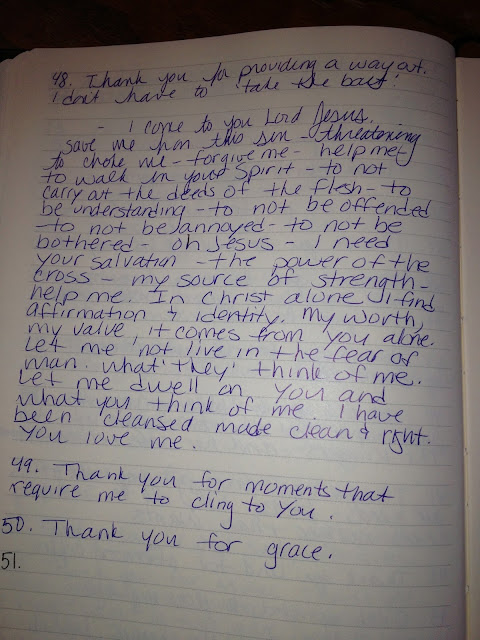 48. Thank you for providing a way out.
I don't have to "take the bait."
- I come to you Lord Jesus.
save me from this sin - threatening
to choke me - forgive me - help me
to walk in your Spirit - to not
carry out the deeds of the flesh - to
be understanding - to not be offended
- to not be annoyed - to not be
bothered - oh Jesus - I need
your salvation - the power of the
cross - my source of strength -
help me. In Christ alone I find
affirmation & identity. My worth,
my value, it comes from you alone.
Let me not live in the fear of
man. What 'they' think of me.
Let me dwell on you and
what you think of me. I have
been cleansed made clean & right.
You love me.
49. Thank you for moments that
require me to cling to You.
50. Thank you for grace.
51.